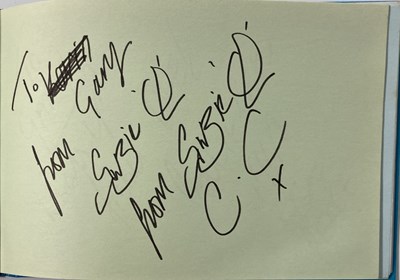 To Gary
from Suzie Q
from Suzie Q
C.C
x